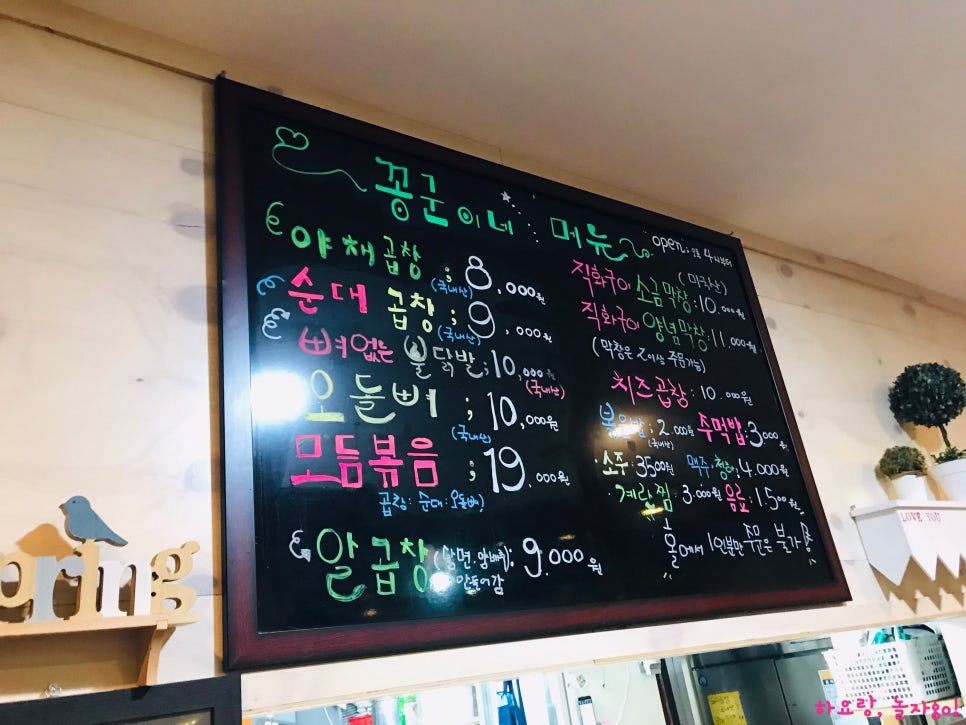 꽁꾼이네 메뉴
open: 오후 4시부터
야채곱창 ; 8,000원
(국내산)
순대 곱창 ; 9,000원
(국내산)
뼈없는 불닭발 ; 10,000원
(국내산)
오돌뼈 ; 10,000원
(국내산)
모듬볶음 ; 19.000원
곱창·순대·오돌뼈)
알곱창 (당면.양배추): 9.000원
안들어감
직화구이 소금막창 : 10.000원
(미국산)
직화구이 양념막창 : 11,000원
(막창은 2이상 주문가능)
치즈곱창 : 10.000원
볶음밥 ; 2.000원 주먹밥 : 3000원
(국내산)
소주 : 3500원 맥주, 청하 4.000원
계란찜 : 3.000원 음료 : 1.500원
홀에서 1인분만 주문은 불가용
LOVE YOU
pring
하요랑, 놀자용!